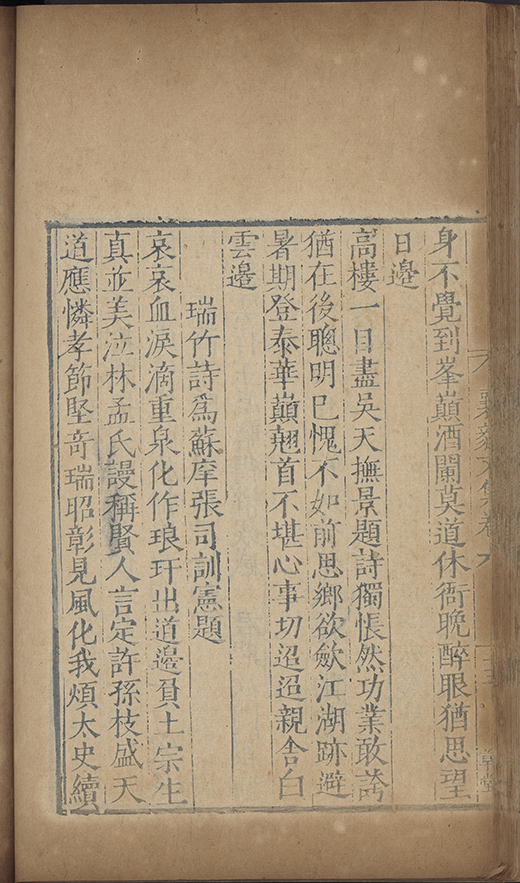 身不覺到峯巔酒闌莫道休衙晚醉眼猶思望
日邊
高樓一目盡吳天撫景題詩獨悵然功業敢誇
猶在後聰明已愧不如前思鄉欲歛江湖跡避
暑期登泰華巔翹首不堪心事切迢迢親舍白
雲邊
瑞竹詩爲蘇庠張司訓憲題
哀哀血淚滴重泉化作琅玕出道邊負土宗生
真並美泣林孟氏謾稱賢人言定許孫枝盛天
道應憐孝節堅奇瑞昭彰見風化我煩太史續